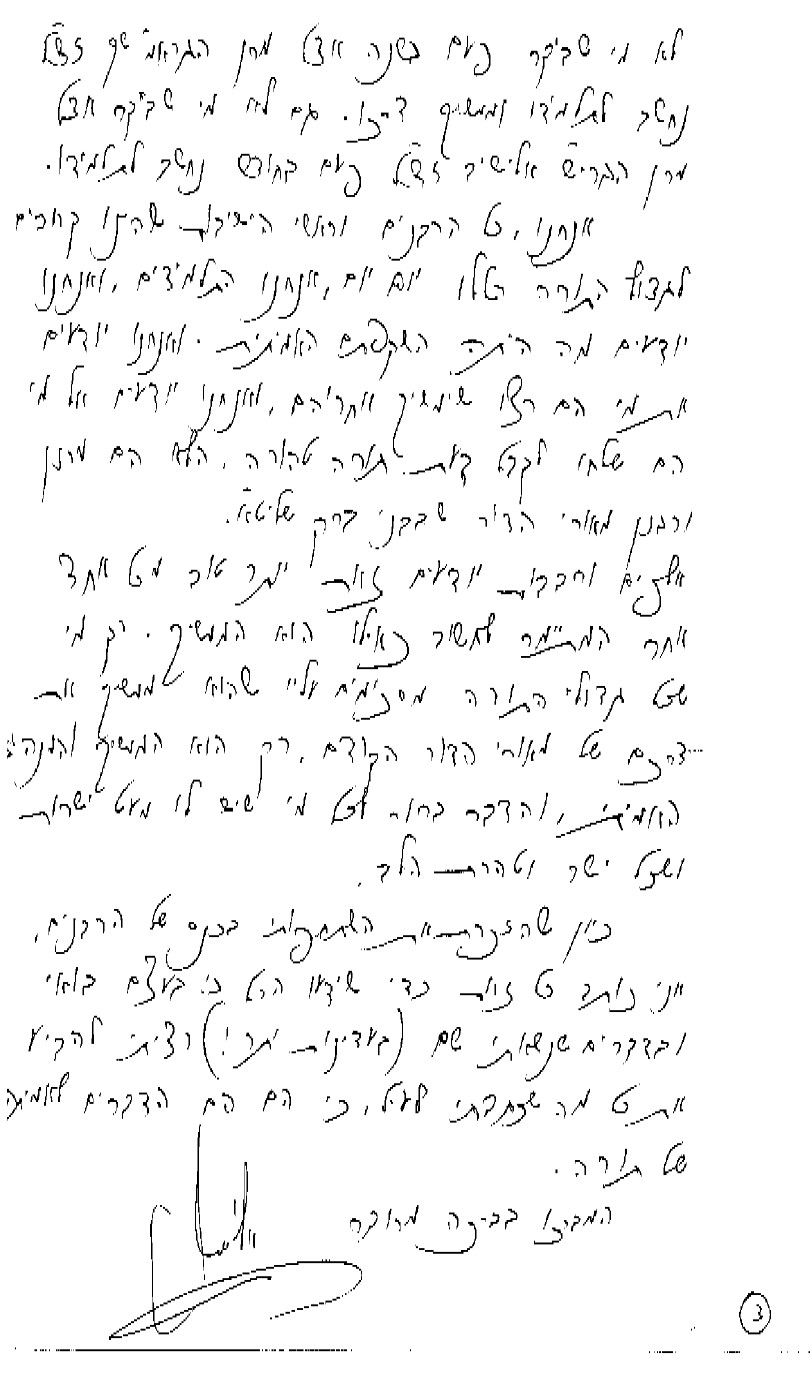 לא מי שביקר פעם בשנה אצל מרן הגראמ"שך זצ"ל
נחשב לתלמידו וממשיך דרכו. גם לא מי שביקר אצל
מרן הגרי"ש אלישיב זצ"ל פעם בחודש נחשב לתלמידו.
אנחנו, כל הרבנים וראשי הישיבות שהיינו קרובים
לגדולי התורה הללו יום יום, אנחנו התלמידים, ואנחנו
יודעים מה היתה השקפתם האמיתית. ואנחנו יודעים
את מי הם רצו שימשיך אחריהם, ואנחנו יודעים אל מי
הם שלחו לקבל דעת תורה טהורה, הלא הם מרנן
ורבנן מאורי הדור שבבני ברק שליט"א.
אלפים ורבבות יודעים זאת יותר טוב מכל אחד
אחר המתיימר לחשוב כאילו הוא הממשיך. רק מי
שכל גדולי התורה מסכימים עליו שהוא ממשיך את
דרכם של מאורי הדור הקודם, רק הוא הממשיך והמנהיג
האמיתי, והדבר ברור לכל מי שיש לו מעט ישרות
ושכל ישר וטהרת הלב.
כיון שהזכרת את השתתפותי בכנס של הרבנים,
אני כותב כל זאת כדי שידעו הכל כי בעצם בואי
ובדברים שנשאתי שם (בעדינות יתר!) רציתי להביע
את כל מה שכתבתי לעיל, כי הם הם הדברים לאמיתה
של תורה.
המברכו בברכה מרובה
3